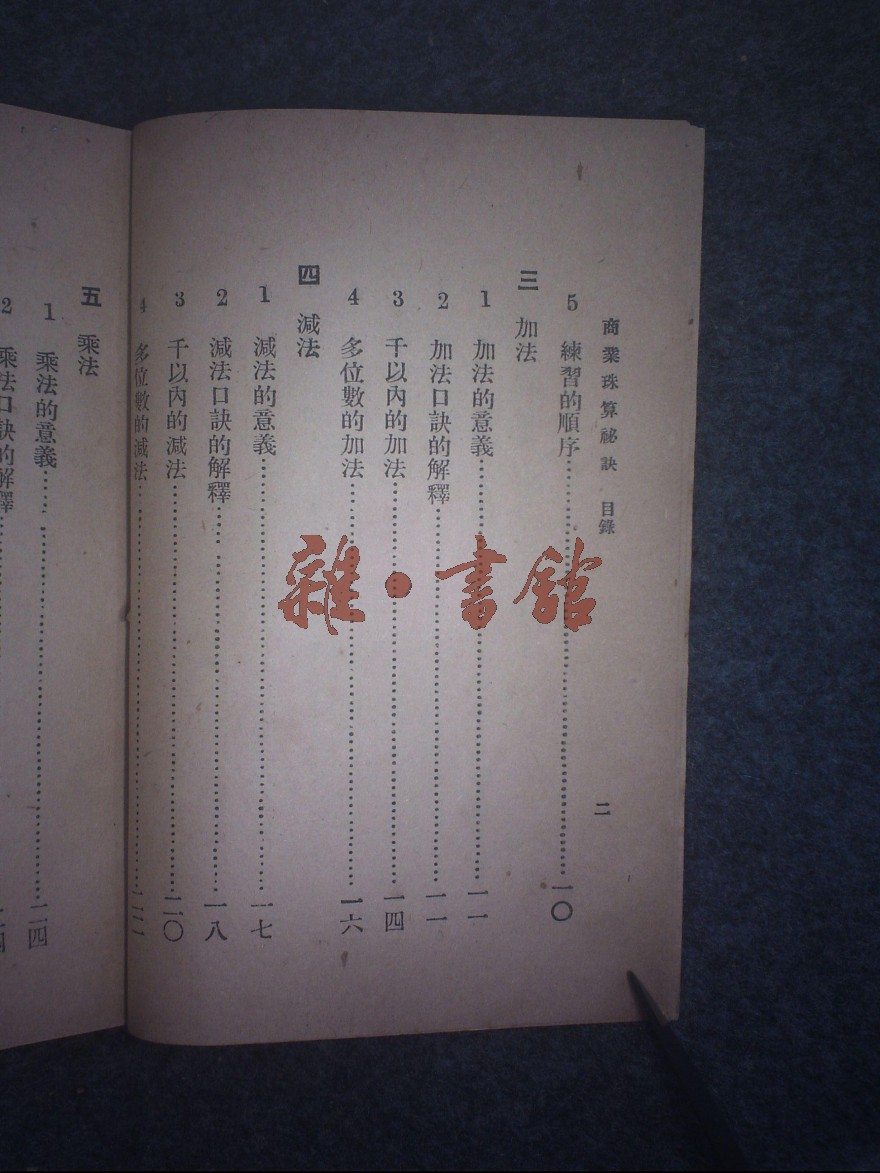 商業珠算祕訣　目錄
二
5　練習的順序……一〇
三　加法
1　加法的意義……一一
2　加法口訣的解釋……一一
3　千以內的加法……一四
4　多位數的加法……一六
四　減法
1　減法的意義……一七
2　減法口訣的解釋……一八
3　千以內的減法……二〇
4　多位數的減法……
五　乘法
1　乘法的意義……二四
2　乘法口訣的解釋……
雜·書館